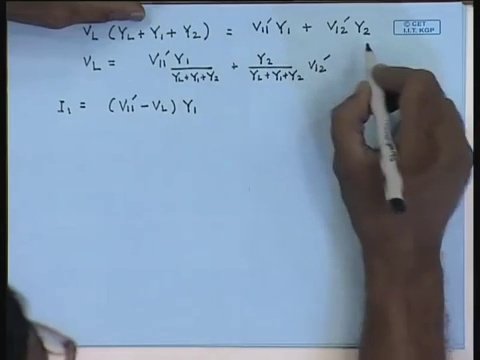 V_L (Y_L + Y_1 + Y_2) = V_11' Y_1 + V_12' Y_2
© CET
I.I.T. KGP
V_L = V_11' Y_1 / (Y_L + Y_1 + Y_2) + Y_2 / (Y_L + Y_1 + Y_2) V_12'
I_1 = (V_11' - V_L) Y_1